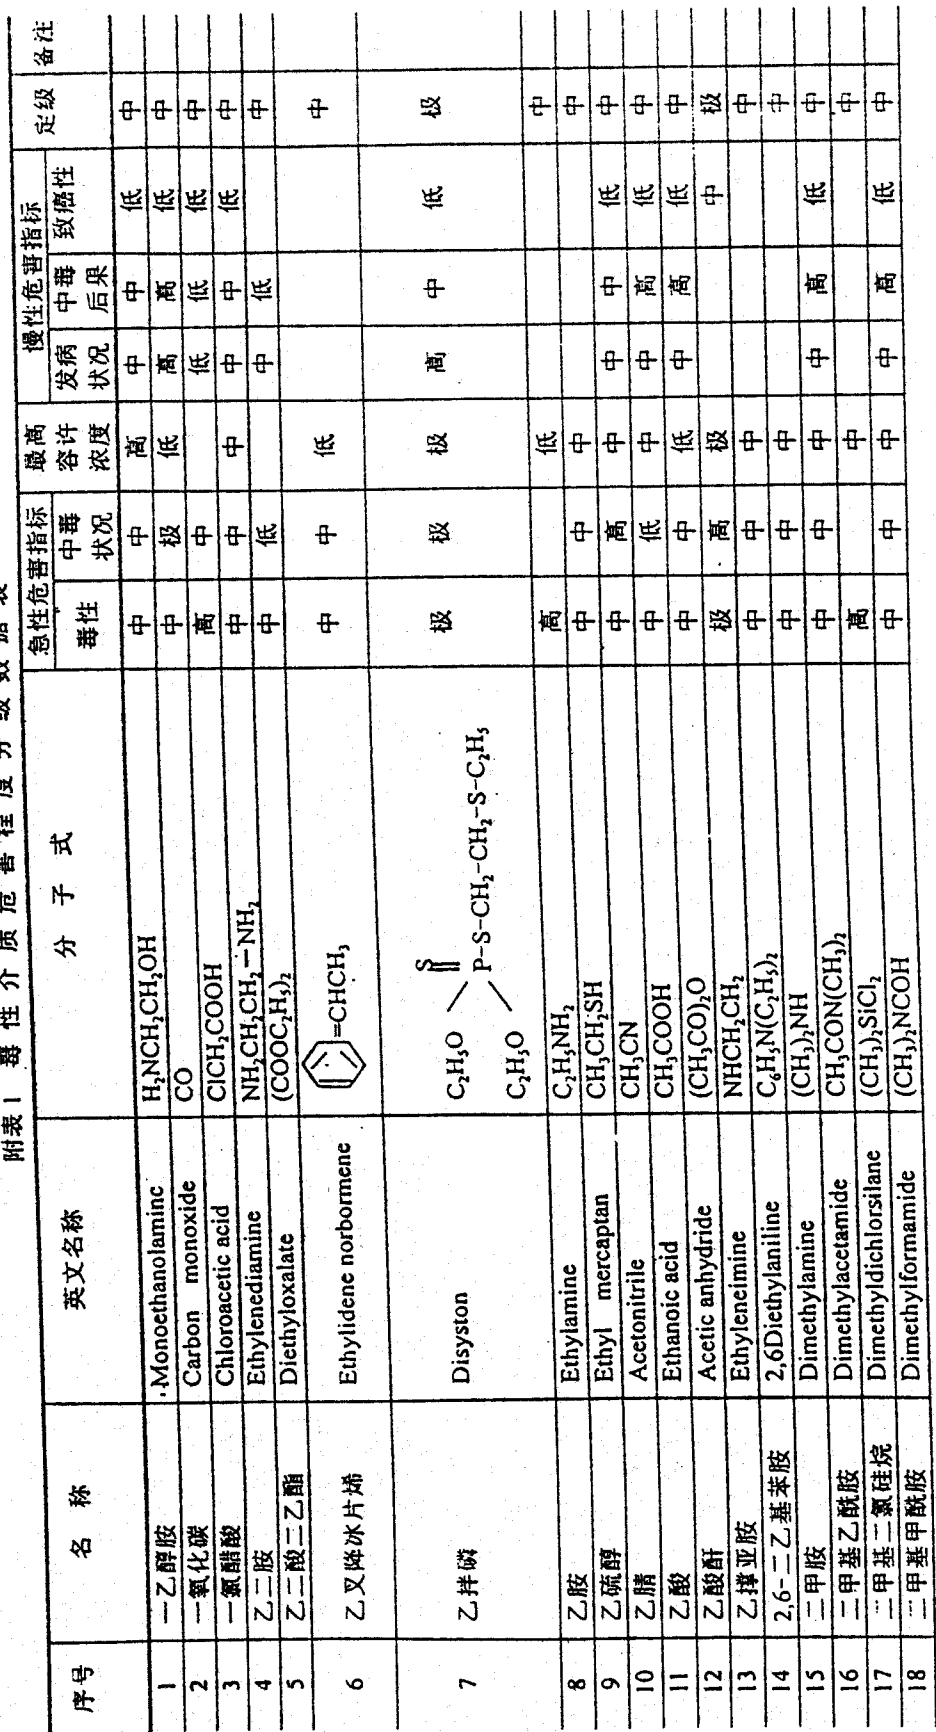 附表1 毒性介质危害程度分级数据表
序号 名 称 英文名称 分 子 式 急性危害指标 最高容许浓度 慢性危害指标 定级 备注
毒性 中毒状况 发病状况 中毒后果 致癌性
1 一乙醇胺 Monoethanolaminc H₂NCH₂CH₂OH 中 中 高 中 中 低 中
2 一氧化碳 Carbon monoxide CO 中 极 低 高 高 低 中
3 一氯醋酸 Chloroacetic acid ClCH₂COOH 高 中 低 低 低 中
4 乙二胺 Ethylenediamine NH₂CH₂CH₂–NH₂ 中 中 中 中 中 低 中
5 乙二酸二乙酯 Diethyloxalate (COOC₂H₅)₂ 中 低 中 低 中
6 乙叉降冰片烯 Ethylidene norbormene =CHCH₃ 中 中 低 中
7 乙拌磷 Disyston C₂H₅O C₂H₅O S P-S-CH₂-CH₂-S-C₂H₅ 极 极 极 高 中 低 极
8 乙胺 Ethylamine C₂H₅NH₂ 高 低 中
9 乙硫醇 Ethyl mercaptan CH₃CH₂SH 中 中 中 中
10 乙腈 Acetonitrile CH₃CN 中 高 中 中 中 低 中
11 乙酸 Ethanoic acid CH₃COOH 中 低 中 中 高 低 中
12 乙酸酐 Acetic anhydride (CH₃CO)₂O 中 中 低 中 高 低 中
13 乙撑亚胺 Ethylenelmine NHCH₂CH₂ 极 高 极 中 极
14 2,6-二乙基苯胺 2,6Diethylaniline C₆H₅N(C₂H₅)₂ 中 中 中 中
15 二甲胺 Dimethylamine (CH₃)₂NH 中 中 中 中
16 二甲基乙酰胺 Dimethylacetamide CH₃CON(CH₃)₂ 中 中 中 中 高 低 中
17 二甲基二氯硅烷 Dimethyldichlorsilane (CH₃)₂SiCl₂ 高 中 中
18 二甲基甲酰胺 Dimethylformamide (CH₃)₂NCOH 中 中 中 中 高 低 中